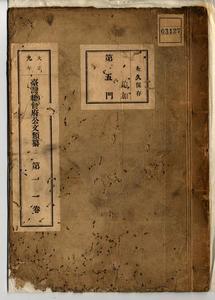 03127
永久保存
追加
第五門
大正
九年
臺灣總督府公文類纂
第一卷